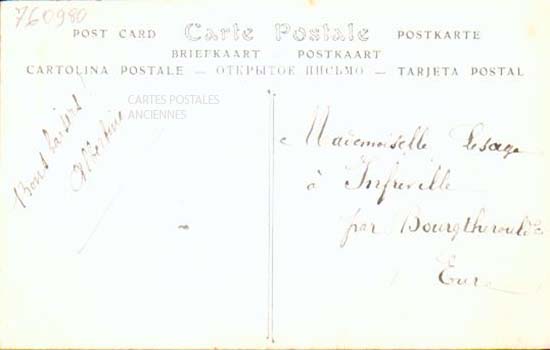 760980
POST CARD Carte Postale POSTKARTE
BRIEFKAART POSTKAART
CARTOLINA POSTALE — ОТКРЫТОЕ ПИСЬМО — TARJETA POSTAL
CARTES POSTALES
ANCIENNES
Bons baisers
Albertine
Mademoiselle Lesage
à Infreville
par Bourgtheroulde
Eure